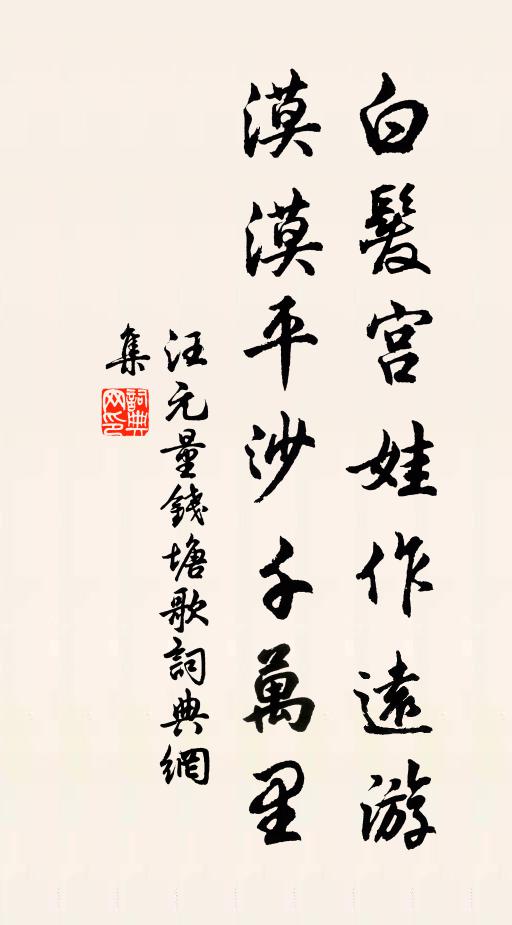 白髮宮娃作遠游
漠漠平沙千萬里
汪元量錢塘歌詞典網
集
詞典網印